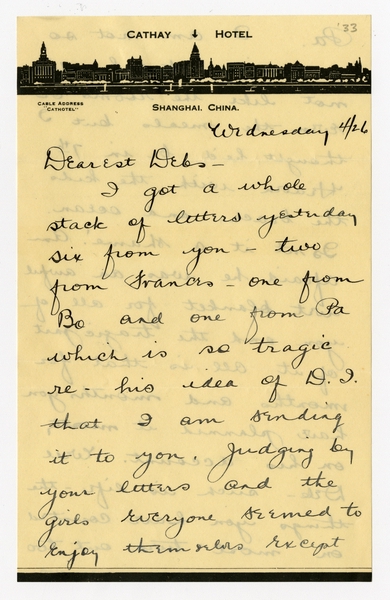 '33
CATHAY HOTEL
CABLE ADDRESS
"CATHOTEL"
SHANGHAI, CHINA.
Wednesday 4/26
Dearest Debs -
I got a whole
stack of letters yesterday
six from you - two
from Frances - one from
Bo and one from Pa
which is so tragic
re - his idea of D. I.
that I am sending
it to you. Judging by
your letters and the
girls everyone seemed to
enjoy themselves except